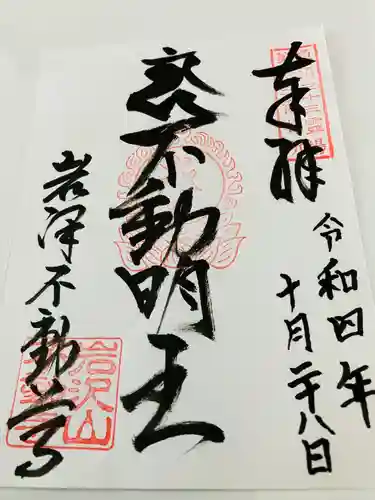 奉拝
令和四年
十月二十八日
不動明王
岩澤不動尊